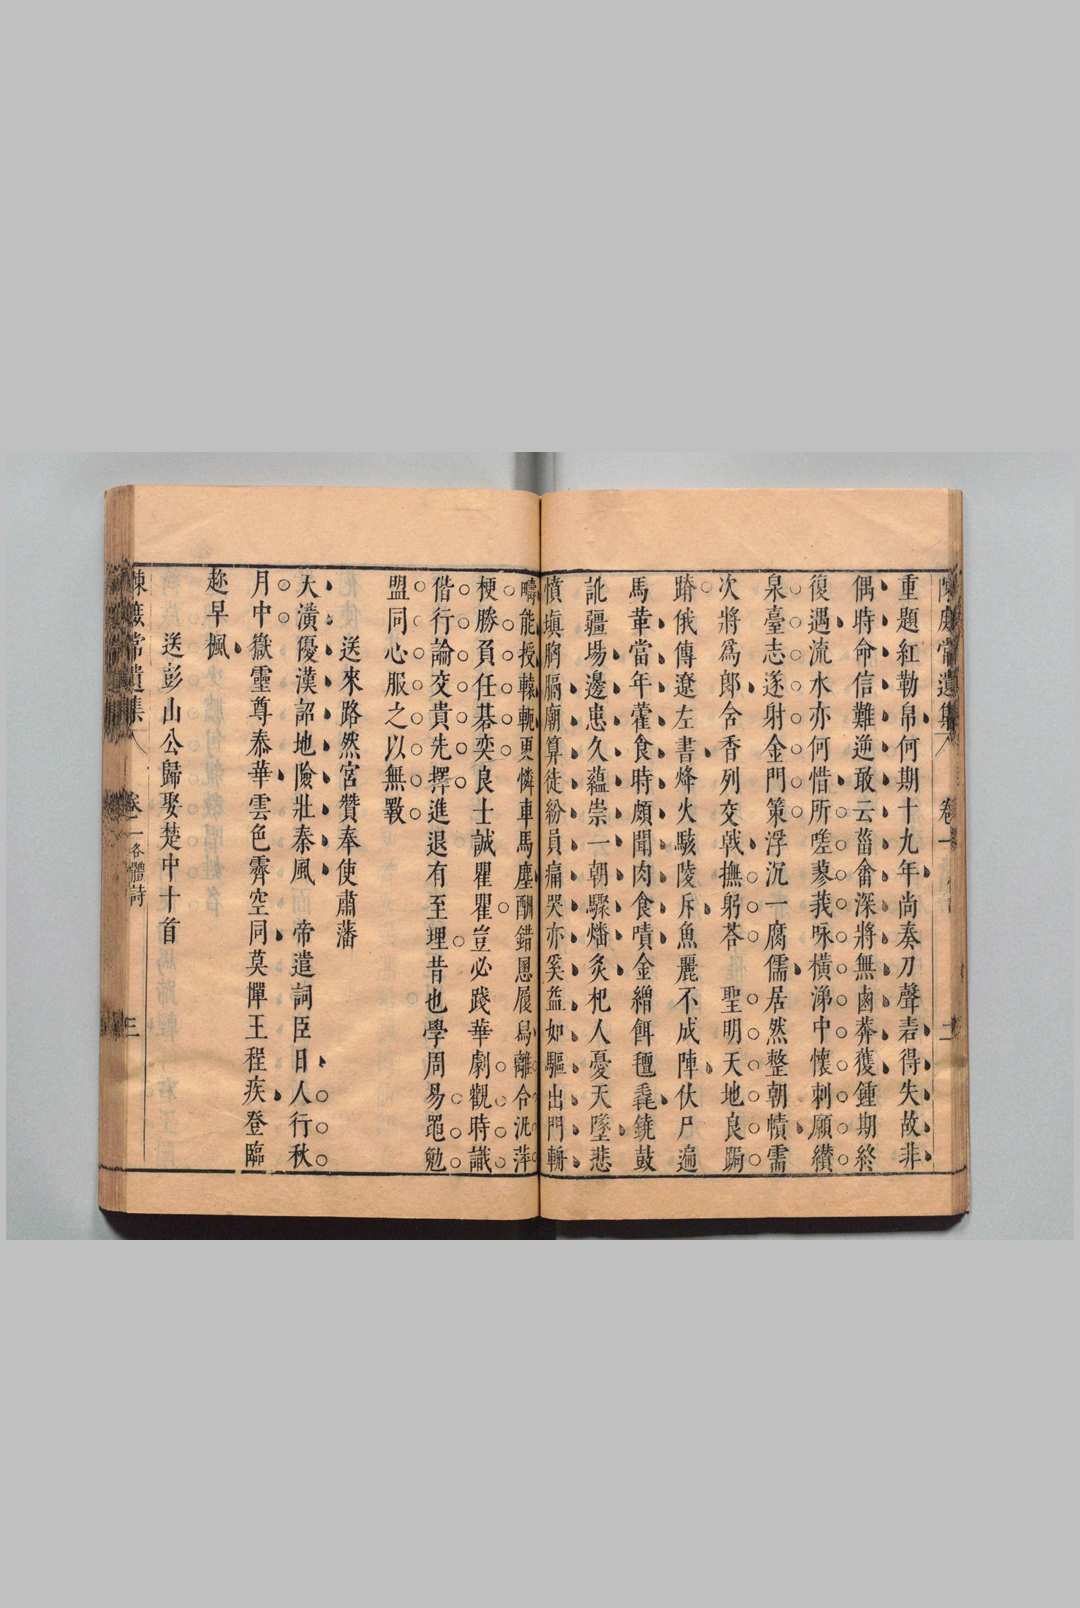 重題紅勒帛何期十九年尚奏刀聲砉得失故非
偶時命信難逆敢云菑畬深將無鹵莽獲鍾期終
復遇流水亦何惜所嗟蓼莪咏橫涕中懷刺願纘
泉臺志遂射金門策浮沉一腐儒居然整朝幘需
次將爲郎含香列交戟撫躬荅 聖明天地良跼
蹐俄傳遼左書烽火駭陵斥魚麗不成陣伏尸遍
馬革當年藿食時頗聞肉食嘖金繒餌氊毳鐃鼓
訛疆場邊患久蘊崇一朝驟燔炙杞人憂天墜悲
憤塡胸膈廟算徒紛員痛哭亦奚益如驅出門輈
疇能授轅軛更憐車馬塵酬錯恩履舄離合汎萍
梗勝負任棊奕良士誠瞿瞿豈必踐華劇觀時識
偕行論交貴先擇進退有至理昔也學周易黽勉
盟同心服之以無斁
送來路然宮贊奉使肅藩
天潢優漢詔地險壯秦風 帝遣詞臣日人行秋
月中嶽靈尊泰華雲色霽空同莫憚王程疾登臨
趂早楓
送彭山公歸娶楚中十首
陳 常遺集 卷一 各體詩 三